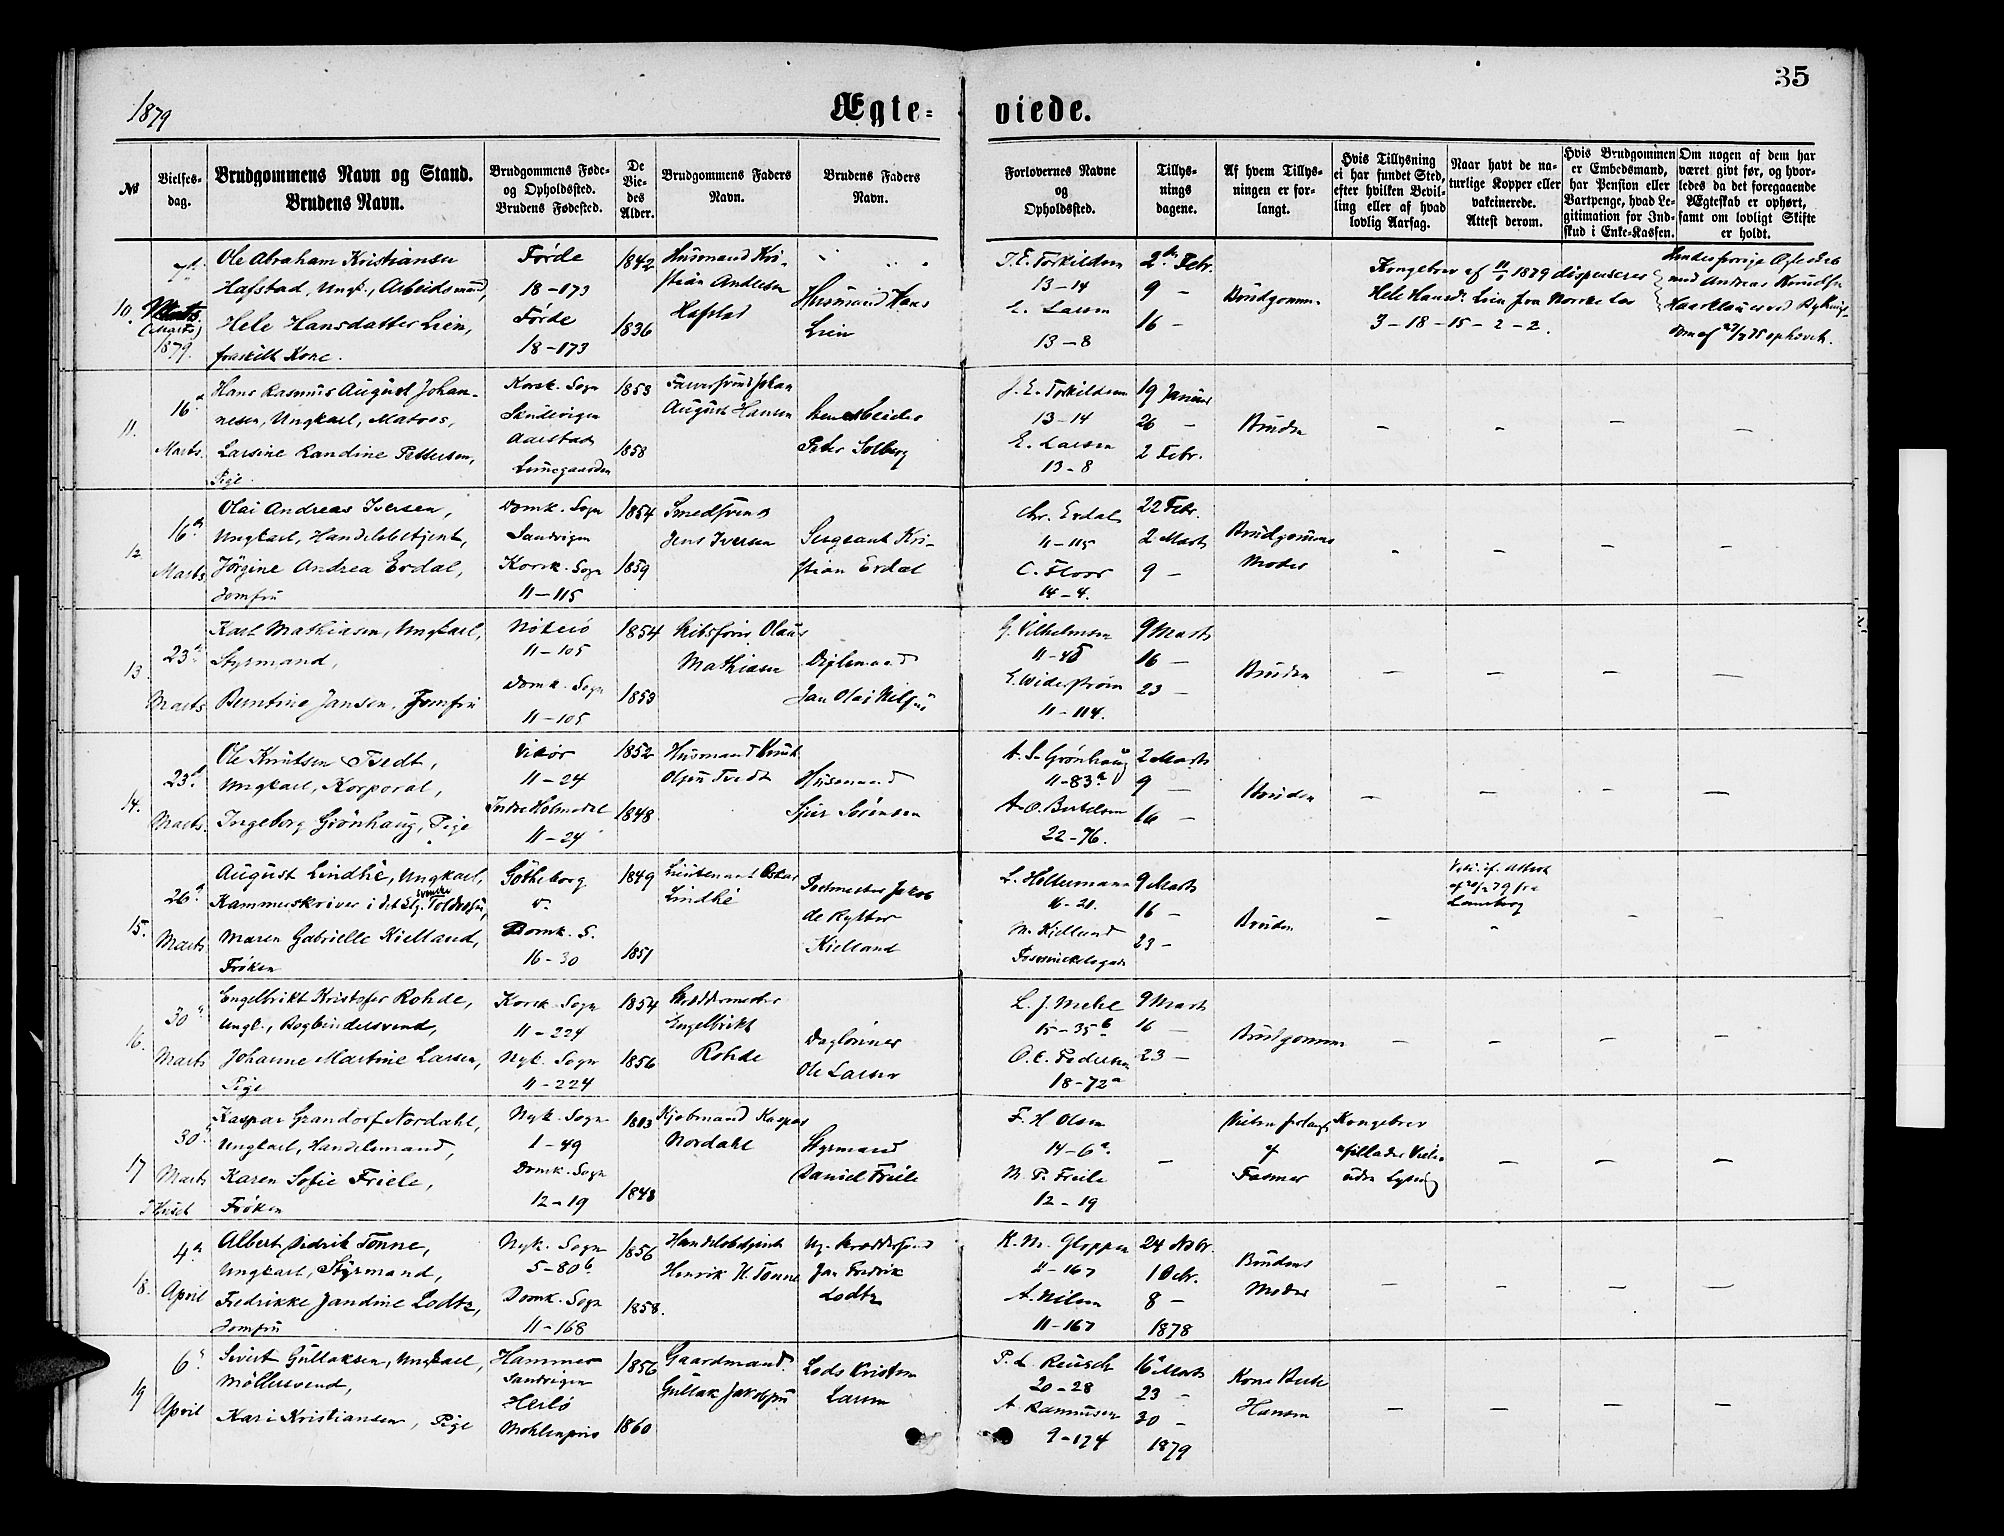 35
1879
Ægte-
viede.
No
Vielses-
dag.
Brudgommens Navn og Stand.
Brudens Navn.
Brudgommens Føde-
og Opholdssted.
Brudens Fødested.
De
Vie-
des
Alder.
Brudgommens Faders
Navn.
Brudens Faders
Navn.
Forlovernes Navne
og
Opholdssted.
Tillys-
nings
dagene.
Af hvem Tillys-
ningen er for-
langt.
Hvis Tillysning
ei har fundet Sted,
efter hvilken Bevil-
ling eller af hvad
lovlig Aarsag.
Naar havt de na-
turlige Kopper eller
vakcinerede.
Attest derom.
Hvis Brudgommen
er Embedsmand,
har Pension eller
Vartpenge, hvad Le-
gitimation for Ind-
skud i Enke-Kassen.
Om nogen af dem har
været givt før, og hvor-
ledes da det foregaaende
Ægteskab er ophørt,
samt om lovligt Skifte
er holdt.
10.
7de
Marts
(Marts)
1879.
Ole Abraham Kristiansen
Hafstad, Ungk., Arbeidsmand,
Hele Hansdatter Lien,
fraskilt Kone.
Førde
18-173
Førde
18-173
1842
1836
Husmand Kri-
stian Andersen
Hafstad
Husmand Hans
Lien
T. E. Torkildsen
13-14
E. Larsen
13-8
2den Febr.
9 -
16 -
Brudgommen
Kongebrev af 11/1 1879 dispenserer
Hele Hansdr. Lien fra Norske Lov
3-18-15-2-2.
11.
16de
Marts.
Hans Rasmus August Johan-
nesen, Ungkarl, Matros,
Larsine Randine Pettersen,
Pige.
Korsk. Sogn
Sandvigen
Aarstad
1853
1858
August Hansen
Peter Solberg
J. E. Torkildsen
13-14
E. Larsen
13-8
19 Januar
26 -
2 Febr.
Bruden
12
16de
Marts
Olai Andreas Iversen,
Ungkarl, Handelsbetjent,
Jørgine Andrea Erdal,
Jomfru
Domk. Sogn
Sandvigen
Korsk. Sogn
11-115
1854
1859
Smedsvend
Jens Iversen
Sergeant Kri-
stian Erdal
Chr. Erdal
11-115
C. Floor
14-4.
22 Febr.
2 Marts
9 -
Brudgommens
Moder
13.
23de
Marts
Karl Mathiasen, Ungkarl,
Styrmand,
Berntine Jansen, Jomfru
11-105
Domk. Sogn
11-105
1854
1853
Skibsfører Olaus
Mathiasen
Jan Olai Nilsen
G. Vilhelmsen
11-45
E. Widerstrøm
11-114.
9 Marts
16 -
23 -
Bruden
14.
23de
Marts.
Ole Knutsen Tvedt,
Ungkarl, Korporal,
Ingeborg Grønhaug, Pige
Vikør
11-24
Indre Holmedal
11-24
1852
1848
Husmand Knut
Olsen Tvedt
Husmand
Sjur Sørensen
A. S. Grønhaug
11-83a
A. O. Bertelsen
22-76.
2 Marts
9 -
16 -
Bruden
15.
26de
Marts
August Lindhé, Ungkarl,
Kammerskriver i det klg. svenske Toldvæsen,
Maren Gabrielle Kielland,
Frøken
Götheborg
Domk. S.
16-30
1849
1851
Lieutenant Oskar
Lindhé
Postmester Jakob
de Rytter
Kielland
L. Holtermann
16-20.
M. Kielland
9 Marts
16 -
23 -
Bruden
16.
30de
Marts
Engelbrikt Kristofer Rohde,
Ungk., Bogbindersvend,
Johanne Martine Larsen,
Pige
Korsk. Sogn
11-224
Nyk. Sogn
11-224
1854
1856
Skræddermester
Engelbrikt
Rohde
Dagløinner
Ole Larsen
L. J. Mehl
15-35b
O. E. Pedersen
18-72a
9 Marts
16 -
23 -
Brudgommen
17
30de
Marts
i Huset
Kaspar Grandorf Nordahl,
Ungkarl, Handelsmand,
Karen Sofie Friele,
Frøken
Nyk. Sogn
1-49
Domk. Sogn
12-19
1843
1848
Kjøbmand Kaspar
Nordahl
Styrmand
Daniel Friele
F. H Olsen
14-6a
M. P. Friele
12-19
Vielsen forlangt
af
Fasmer
Kongebrev
18.
4de
April
Albert Didrik Tønne,
Ungkarl, Styrmand,
Fredrikke Jandine Lodtz,
Jomfru
Nyk. Sogn
5-80b
Domk. Sogn
11-168
1856
1858.
Handelsbetjent
Henrik H. Tønne
Jan Fredrik
Lodtz
K. M. Glopper
11-167
A. Nilsen
11-167
24 Nvbr.
1 Dcbr.
8 -
1878
Brudens
Moder
19
6te
April
Sivert Gullaksen, Ungkarl,
Møllersvend,
Kari Kristiansen, Pige
Hammer
Sandvigen
Herlø
Møhlenpris
1856
1860
Gaardmand
Gullak Jakobsen
Lods Kristen
Larsen
P. L. Reusch
20-28
A. Rasmussen
9-174
16de Marts
23 -
30 -
1879
Hansen